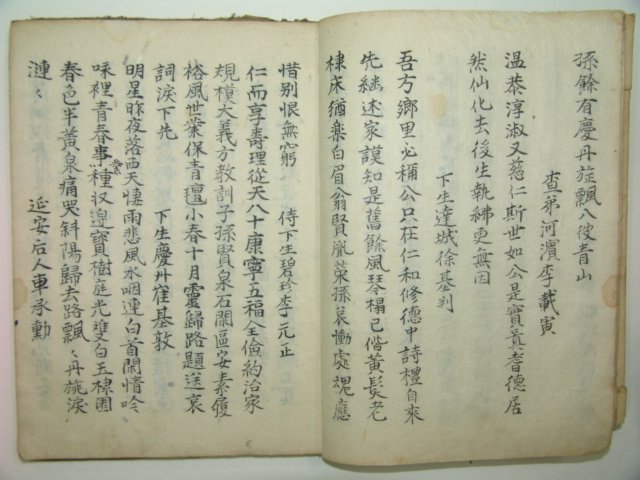 孫餘有慶丹旋飄入彼青山
查弟河濱李載寅
温恭淳淑又慈仁斯世如公是實真耆德居
然仙化去後生執紼更無因
下生達城徐基判
吾方鄉里必稱公只在仁和修德中詩禮自來
先継述家謨知是舊餘風琴榻已偕黃髮老
棣床猶樂白眉翁賢胤榮孫哀慟處謾應
惜別恨無窮
侍下生碧珍李元正
仁而享壽理從天八十康寧五福全儉約治家
規模大義方敎訓子孫賢泉石開區安素履
裕風世業保青氊小春十月靈歸路題送哀
詞淚下先
下生慶州崔基敦
明星昨夜落西天悽雨悲風水咽連白首閑情吟
味裡青春事業種收邊寶樹庭光雙白玉棣園
春色半黃泉痛哭斜陽歸去路飄〻丹旋淚
漣〻
延安后人車承勳